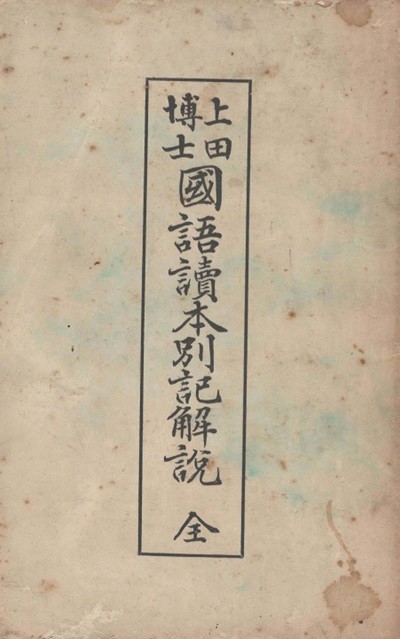 上田
博士
國語讀本別記解說 全